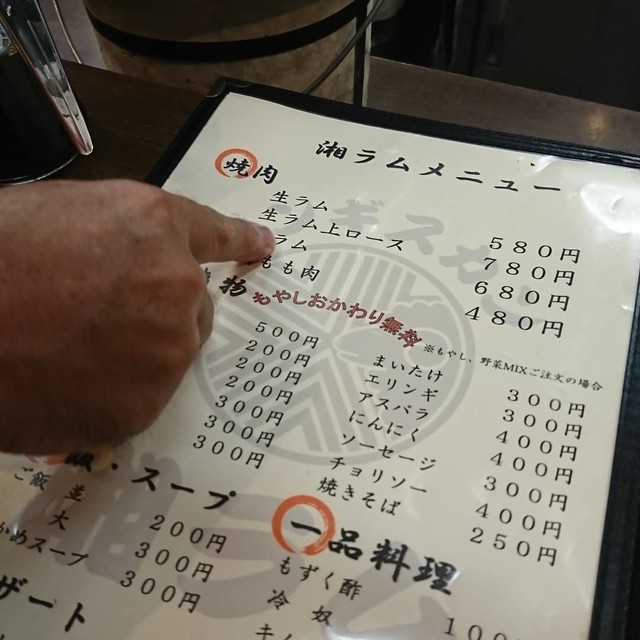 湘ラムメニュー
焼肉
生ラム 580円
生ラム上ロース 780円
ラム 680円
もも肉 480円
物 もやしおかわり無料
※もやし、野菜MIXご注文の場合
500円 まいたけ 300円
200円 エリンギ 300円
200円 アスパラ 400円
200円 にんにく 400円
300円 ソーセージ 300円
300円 チョリソー 400円
300円 焼きそば 250円
飯・スープ
ご飯 並 200円
大 300円
かめスープ 300円
ザート
一品料理
もずく酢
冷奴